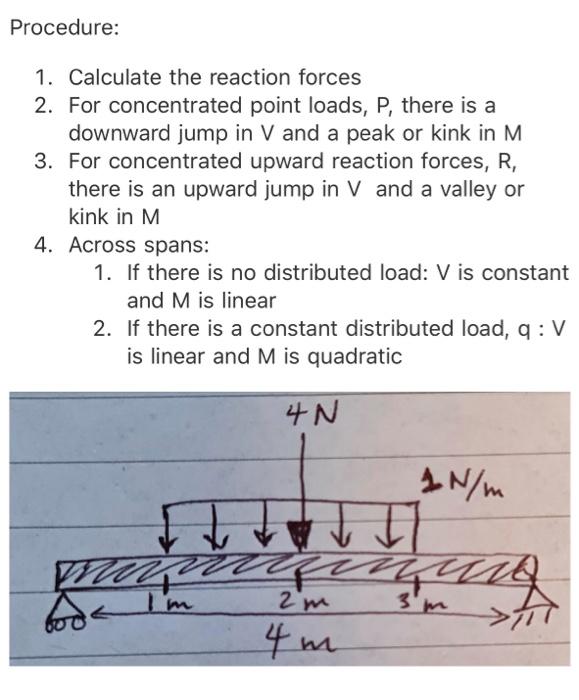 Procedure:
1. Calculate the reaction forces
2. For concentrated point loads, P, there is a
downward jump in V and a peak or kink in M
3. For concentrated upward reaction forces, R,
there is an upward jump in V and a valley or
kink in M
4. Across spans:
1. If there is no distributed load: V is constant
and M is linear
2. If there is a constant distributed load, q : V
is linear and M is quadratic
4 N
1 N/m
1 m
2 m
3 m
4 m